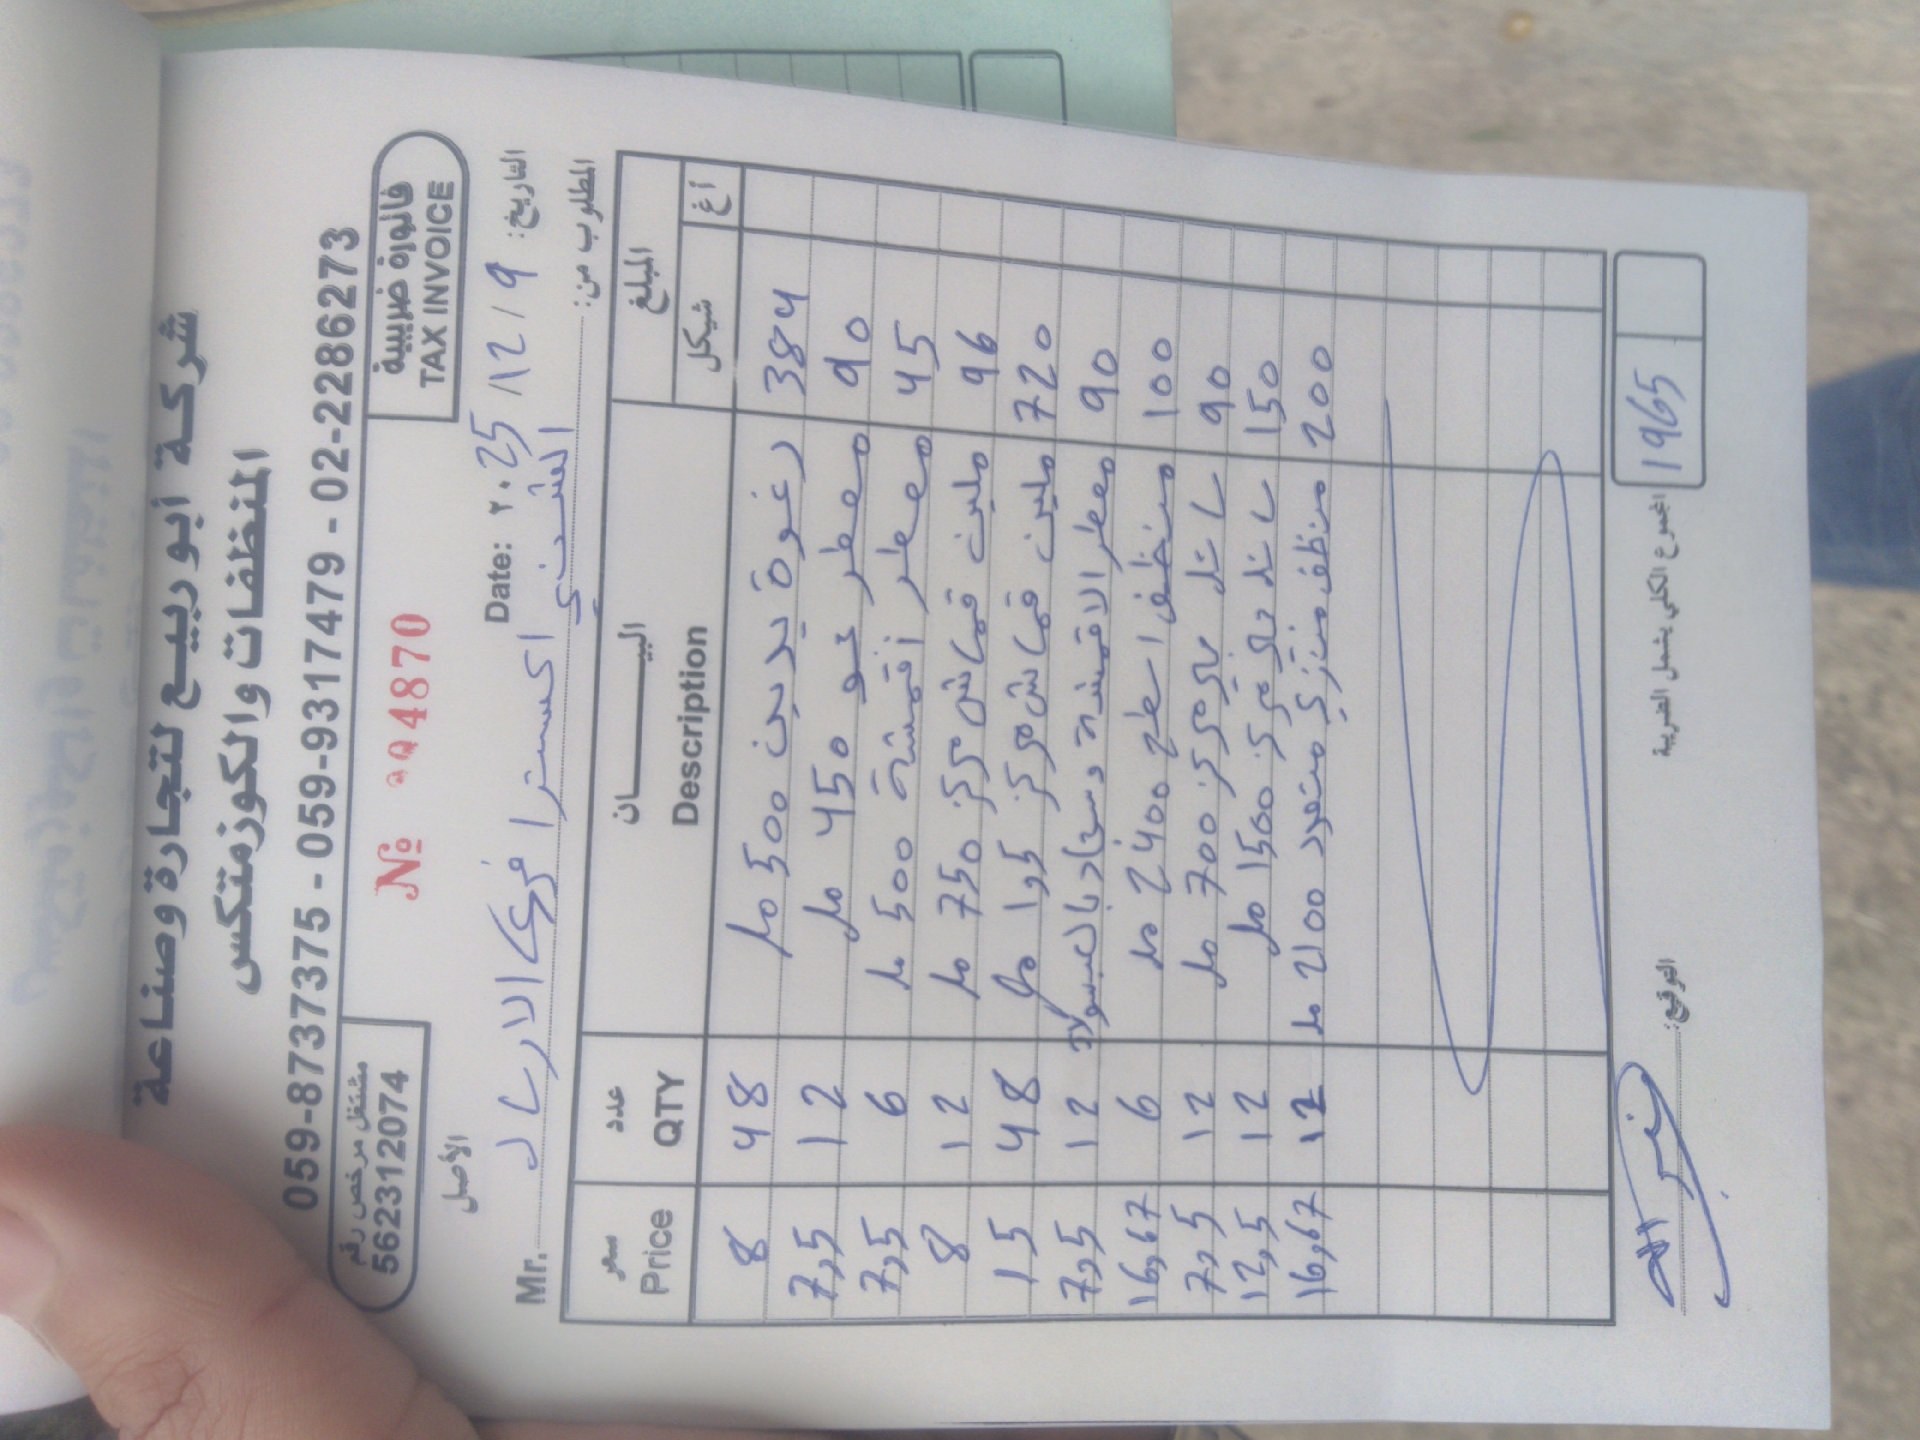 شركة أبو ربيع لتجارة وصناعة
المنظفات والكوزمتكس
059-8737375 - 059-9317479 - 02-2286273
مشتغل مرخص رقم
562312074
فاتورة ضريبية
TAX INVOICE
الأصل
№ 004870
Date: ٢٠25/12/9 التاريخ:
Mr. اكسترا فري الارسال
المطلوب من:
سعر Price عدد QTY البيـــــان Description المبلغ شيكل أغ
8 48 رغوة يدين 500 مل 384
7,5 12 معطر جو 450 مل 90
7,5 6 معطر أقمشة 500 مل 45
8 12 ملين قماش مركز 750 مل 96
15 48 ملين قماش مركز 1,5 مل 720
7,5 12 معطر الاقمشه وسجاد 90
16,67 6 منظف اسطح 2400 مل 100
7,5 12 سائل مركز 700 مل 90
12,5 12 سائل مركز 1500 مل 150
16,67 12 منظف منزلي متعدد 2100 مل 200
المجموع الكلي يشمل الضريبة 1965
التوقيع: